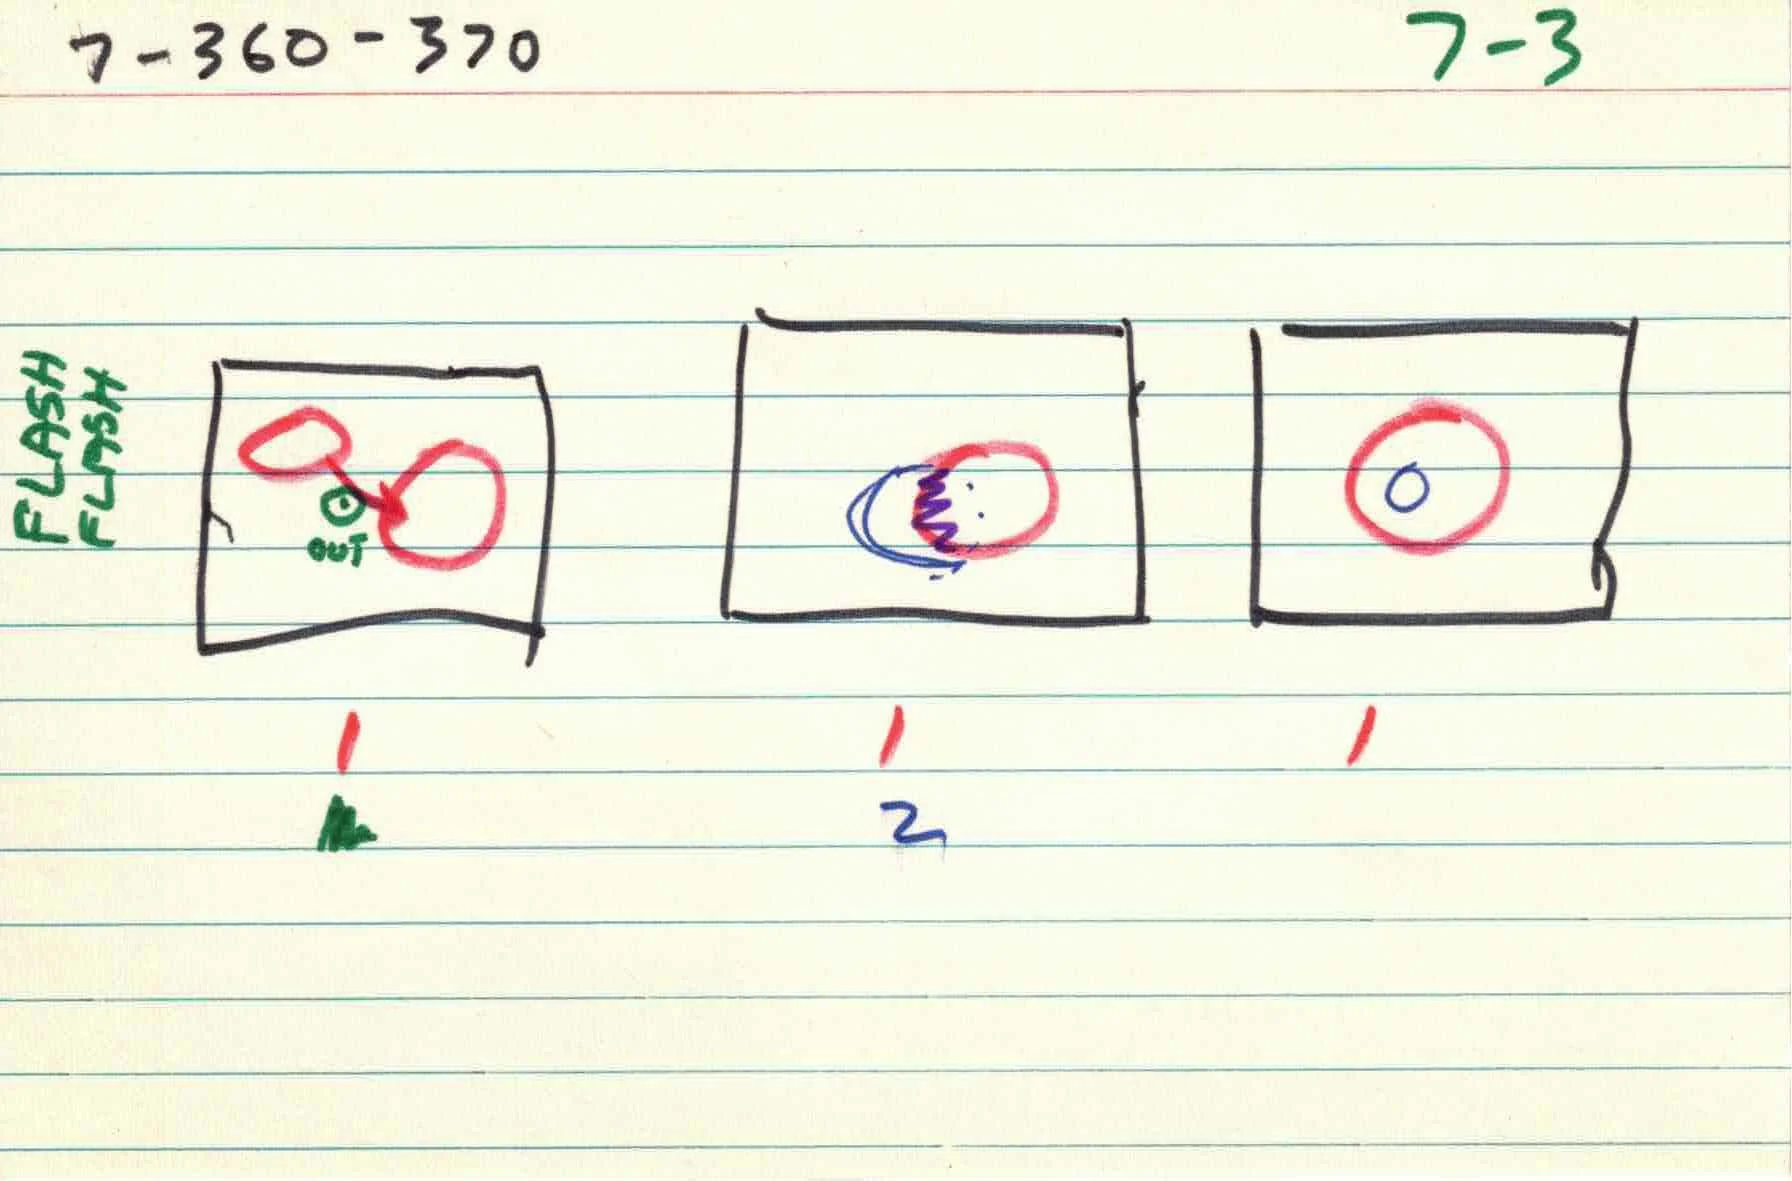 7-360-370
7-3
FLASH
FLASH
OUT
1
1
1
2